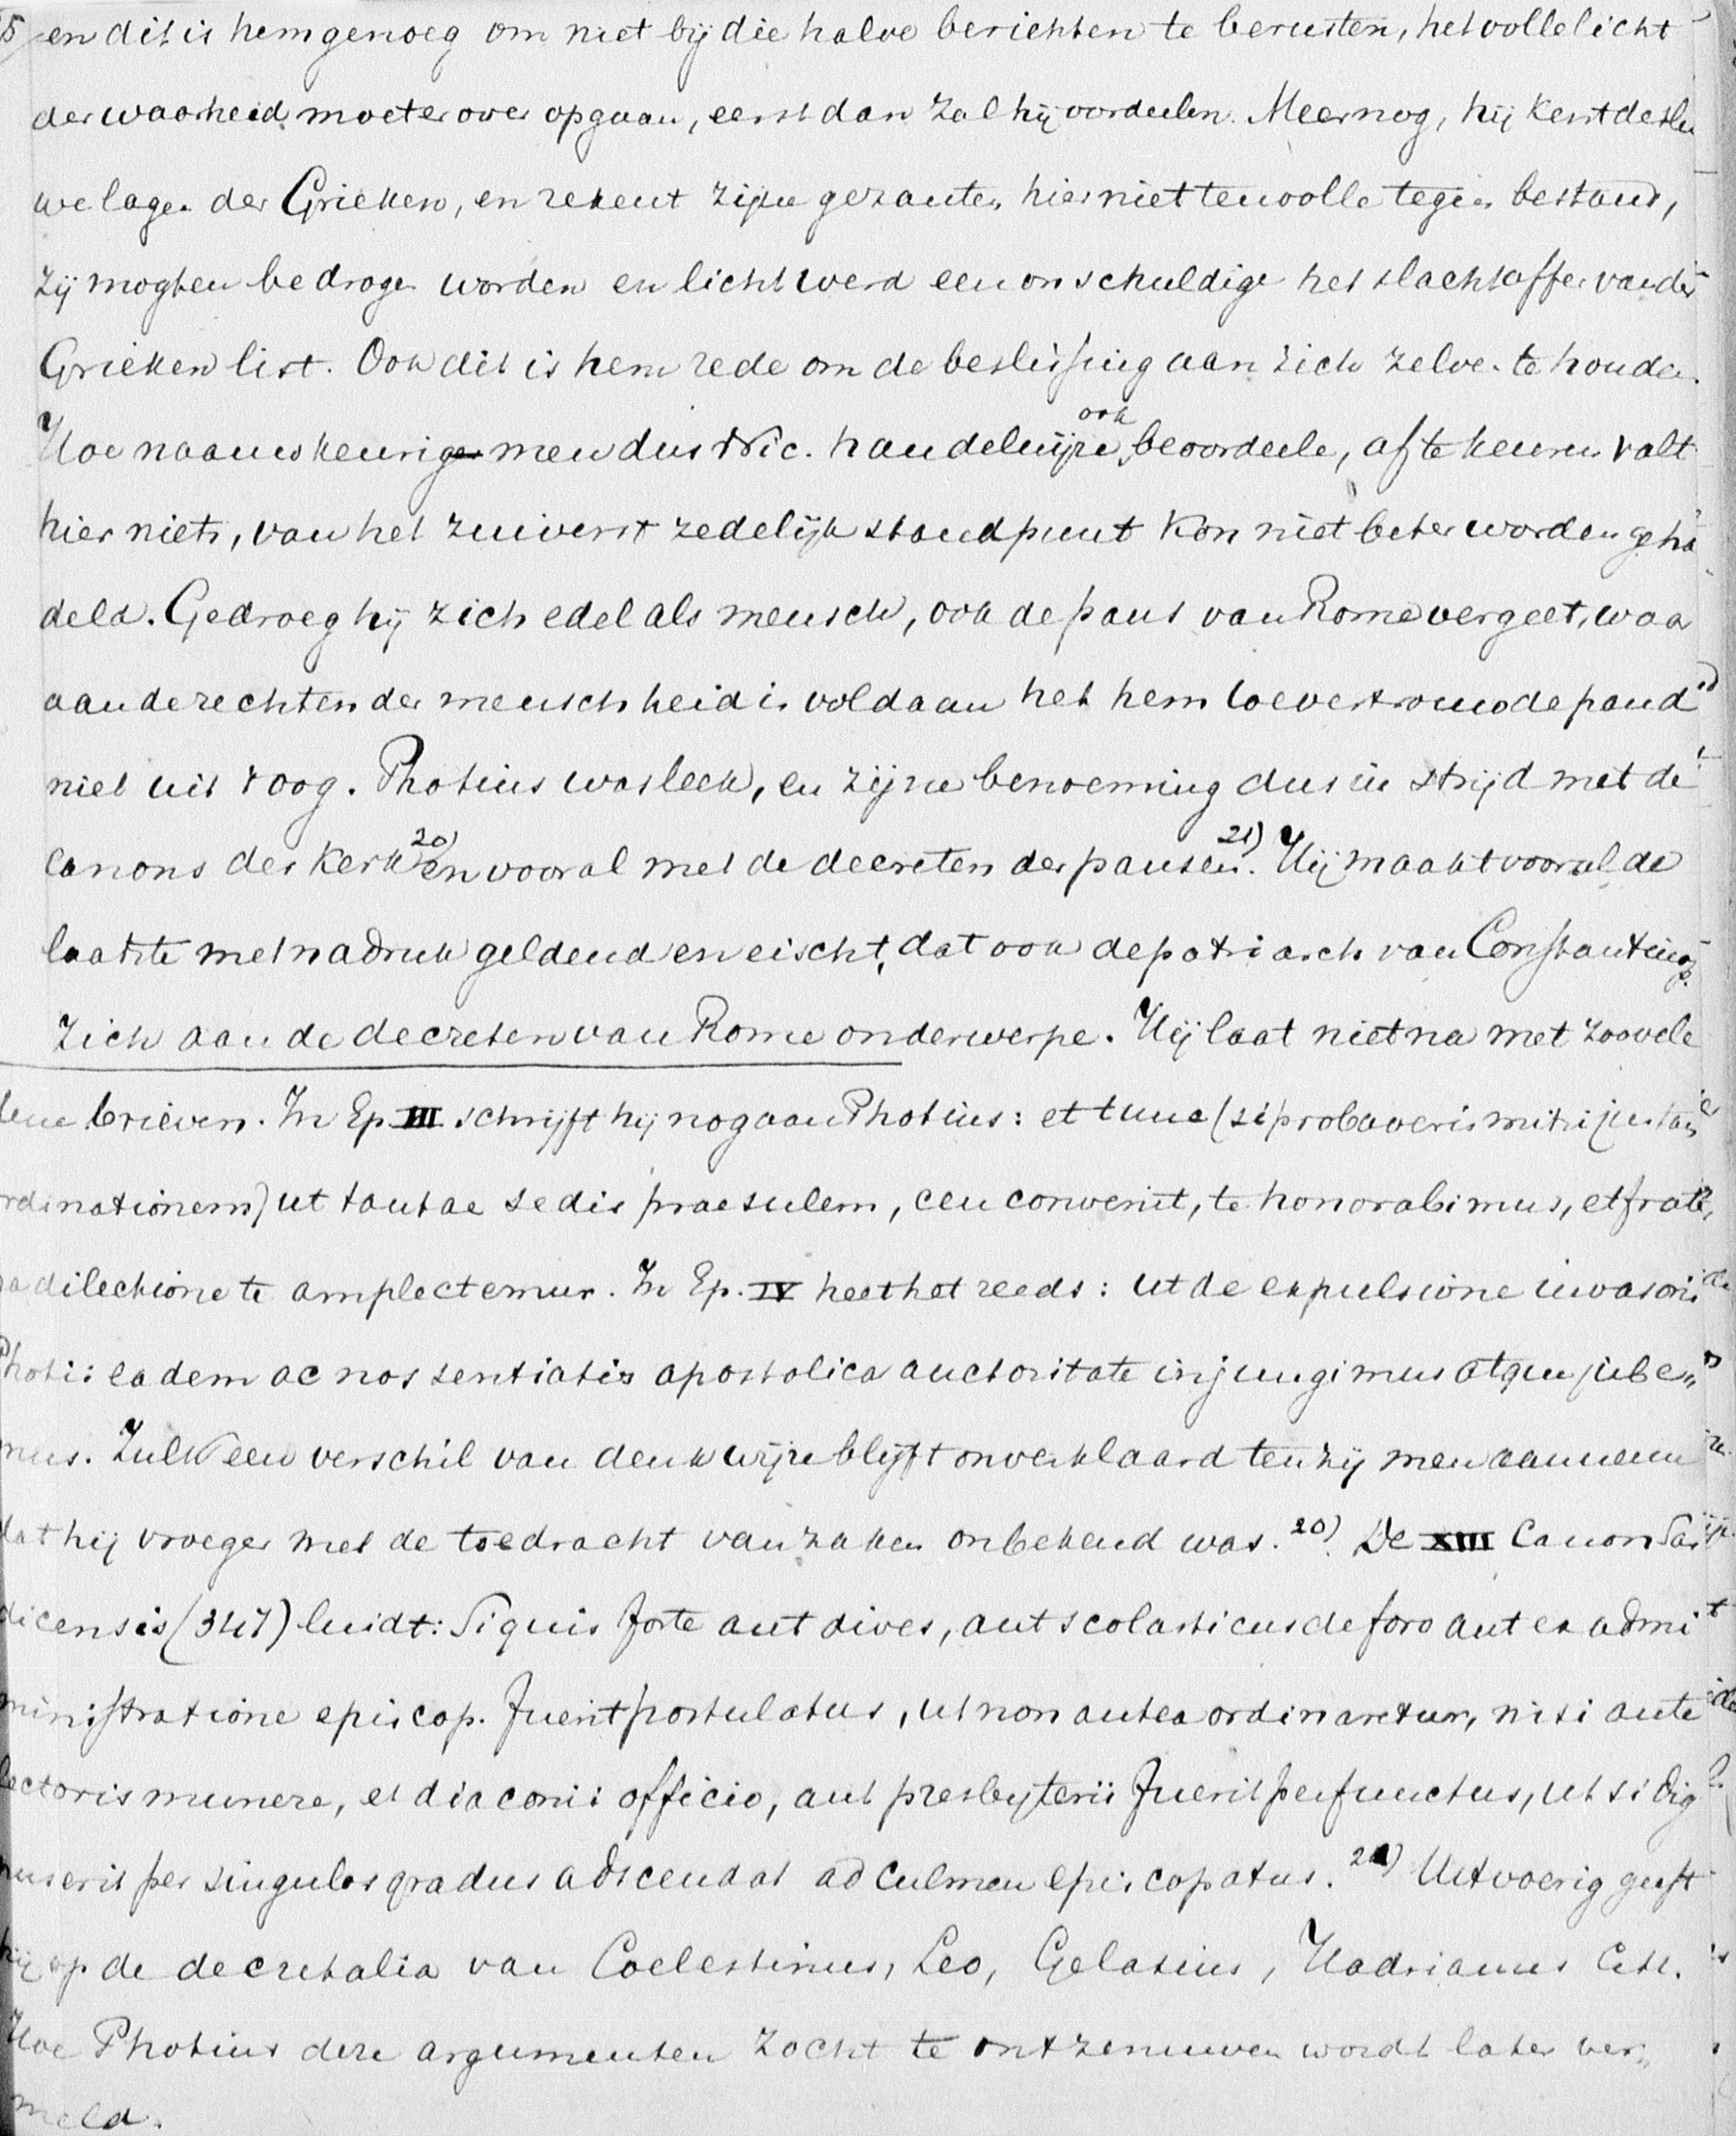 en dit is hem genoeg om niet bij die halve berichten te berusten, het volle licht
der waarheid moet er over opgaan, eerst dan zal hij oordeelen. Meer nog, hij kent de slu
we lagen der Grieken, en rekent zijne gezanten hier niet ten volle tegen bestand,
zij mogten bedrogen worden en licht werd een onschuldige het slachtoffer van der
Grieken list. Ook dit is hem rede om de beslissing aan zich zelven te houden.
Hoe naauwkeurig men dus Nic. handelwijze ook beoordeele, af te keuren valt
hier niets, van het zuiverst zedelijk standpunt kon niet beter worden geha
deld. Gedroeg hij zich edel als mensch, ook de paus van Rome vergeet, waa
aan de rechten der menschheid is voldaan het hem toevertrouwde pand
niet uit 't oog. Photius was leek, en zijne benoeming dus in strijd met de
canons der kerk 20) en vooral met de decreten der pausen. 21) Hij maakt vooral de
laatste met nadruk geldend en eischt, dat ook de patriarch van Constantinop.
zich aan de decreten van Rome onderwerpe. Hij laat niet na met zoovele
brieven. In Ep. III schrijft hij nog aan Photius: et tunc (si probaveris mihi justam
rdinationem) ut tantae sedis praesulem, ceu convenit, te honorabimus, et frater
a dilectione te amplectemur. In Ep. IV heet het reeds: ut de expulsione invasoris
Photii eadem ac nos sentiatis apostolica auctoritate injungimus atque jube„
mus. Zulk een verschil van denkwijze blijft onverklaard tenzij men aanneme
dat hij vroeger met de toedracht van zaken onbekend was. 20) De XIII Canon Sar
dicensis (347) luidt: Si quis forte aut dives, aut scolasticus de foro aut ex admi
ministratione episcop. fuerit postulatus, ut non antea ordinaretur, nisi ante
lectoris munere, et diaconii officio, aut presbyterii fuerit perfunctus, ut si dig
nus erit per singulos gradus adscendat ad culmen episcopatus. 21) Uitvoerig geeft
hij op de decretalia van Coelestinus, Leo, Gelasius, Hadrianus Cett.
Hoe Photius deze argumenten zocht te ontzenuwen wordt later ver„
meld.